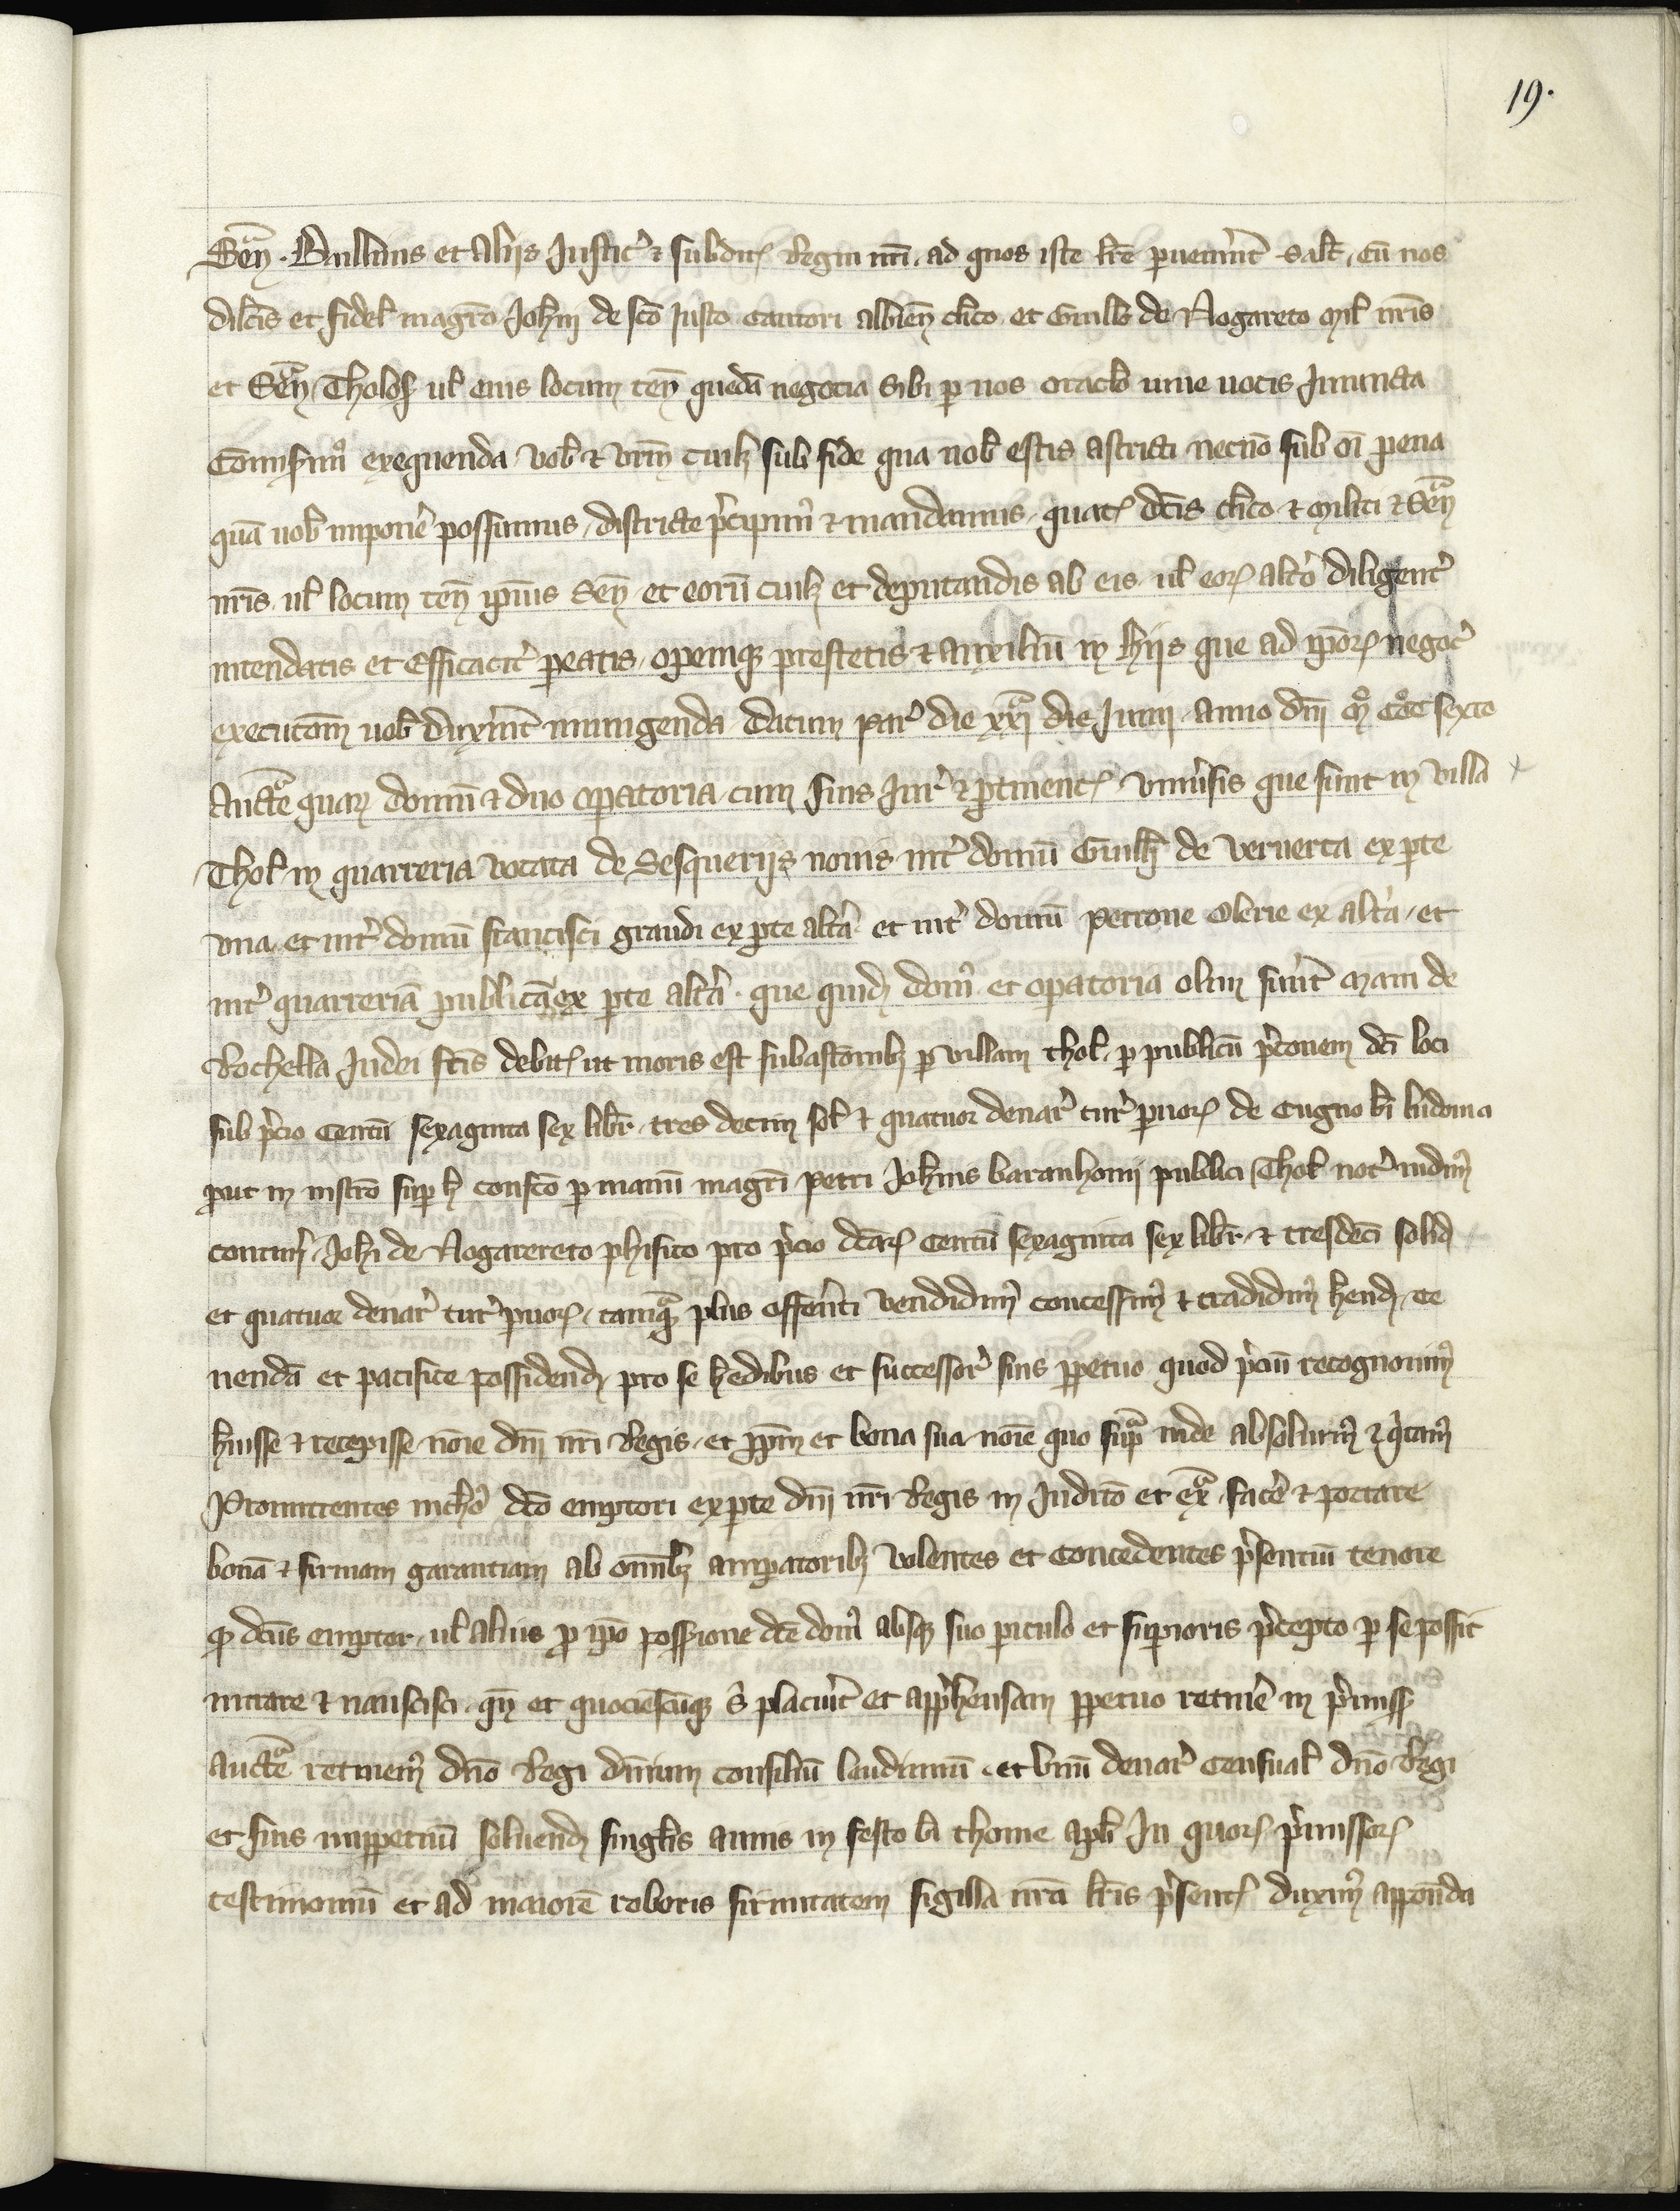 19.
Señ. Baillivis et aliis Justic' & subdit' regni nr̄i ad quos iste lr̄e pervener̄it salt̄. Cū nos
dilc̄is et fidel' magr̄o Joh̄i de sc̄o Justo cantori albien̄ cl̄ico et Guill'o de Nogareto mil' nr̄is
et Señ Tholos' ul' eius locum ten̄ quedā negocia sibi p̱ nos oraclo̅ uiue uocis Iniuncta
Comisim⁹ exequenda vob' & vr̄m cuil; sub fide qua nob' estis astricti necnō sub oī pena
quā uob' imponē possumus, districte p̓cipim⁹ & mandamus, quat' dc̄is cl̄ico & militi & Señ
nr̄is ul' locum ten̄ ip̄ius Señ et eorū cuil; et deputandis ab eis ul' eor' alt̓o diligent̓
intendatis et efficacit̓ p̱eatis, opemq; prestetis & auxiliū in hijs que ad ip̄or' negoc̓
executōm uob' duxer̄it iniungenda. Datum par̓ die xxi die Junij anno dn̄i M° CC°C sexto
Auct̄e quar' domū & duo op̱atoria cum suis iur̓ & p̱tinent' vniu̓sis que sunt in villa
Thol' in quarreria vocata de Sesquerijs nouis int̓ domū Guill'i de veruerta ex p̱te
vna et int̓ domū francisci grandi ex p̱te alt̓a et int̓ domū petrone Olerie ex alt̓a, et
int̓ quarreriā publicā ex p̱te alt̓a. que quid' dom⁹ et op̱atoria olim fuer̄t Mam de
Rochella Judei fc̄is debit' ut moris est subastōnib; p̱ villam thol' p̱ publicū p̓conem dc̄i loci
sub p̓cio Centū sexaginta sex libr̄ tres decim sol' & quatuor denar̓ tur̓ p̱uor' de Cugno
put in instr̄o sup̱ h̄ confc̄o p̱ manū magr̄i petri Joh̄nis baranhoni publici Thol' not̓ uidim⁹
contin̓i, Joh̄i de Nogarereto phisico pro p̓cio dc̄ar' Centū sexaginta sex libr̄ & tresdecī solid'
et quatuor denar̓ tur̓ p̱uor', tamq̄ plus offer̄nti vendidim⁹ concessim⁹ & tradidim⁹ h̄end' te
nendā et pacifice possidend' pro se h̄edibus et successor̓ suis pp̱etuo quod p̓ciū recognouim⁹
h̄uisse & recepisse noīe dn̄i nr̄i Regis, et ip̄m et bona sua noīe quo sup̄ inde absoluim⁹ & q̓tam⁹
Promittentes dc̄o emptori ex p̱te dn̄i nr̄i Regis in Judicō et ex̄ fac̓e & portare
bonā & firmam garantiam ab omnib; amp̱atorib; volentes et concedentes p̓sentiū tenore
q̱ dc̄us emptor, ul' alius p̱ ip̄o possessione dc̄e dom⁹ absq; suo p̱iculo et sup̱ioris p̓cepto p̱ se possit
intrare & nancisci qn̄ et quociēscūq; s̓ placu̓it et app̱hensam pp̱etuo retin̓e in p̓miss'
auct̄e retinem⁹ dn̄o Regi dn̄ium consiliū laudimiū, et vnū denar̓ censual' dn̄o Regi
et suis imp̱petuū soluend' singl̄is annis in festo b̄i thome ap̄l'i In quor' p̓missor'
testimoniū et ad maiorē roboris firmitatem sigilla nr̄a lr̄is p̓sent' duxim⁹ apponēda